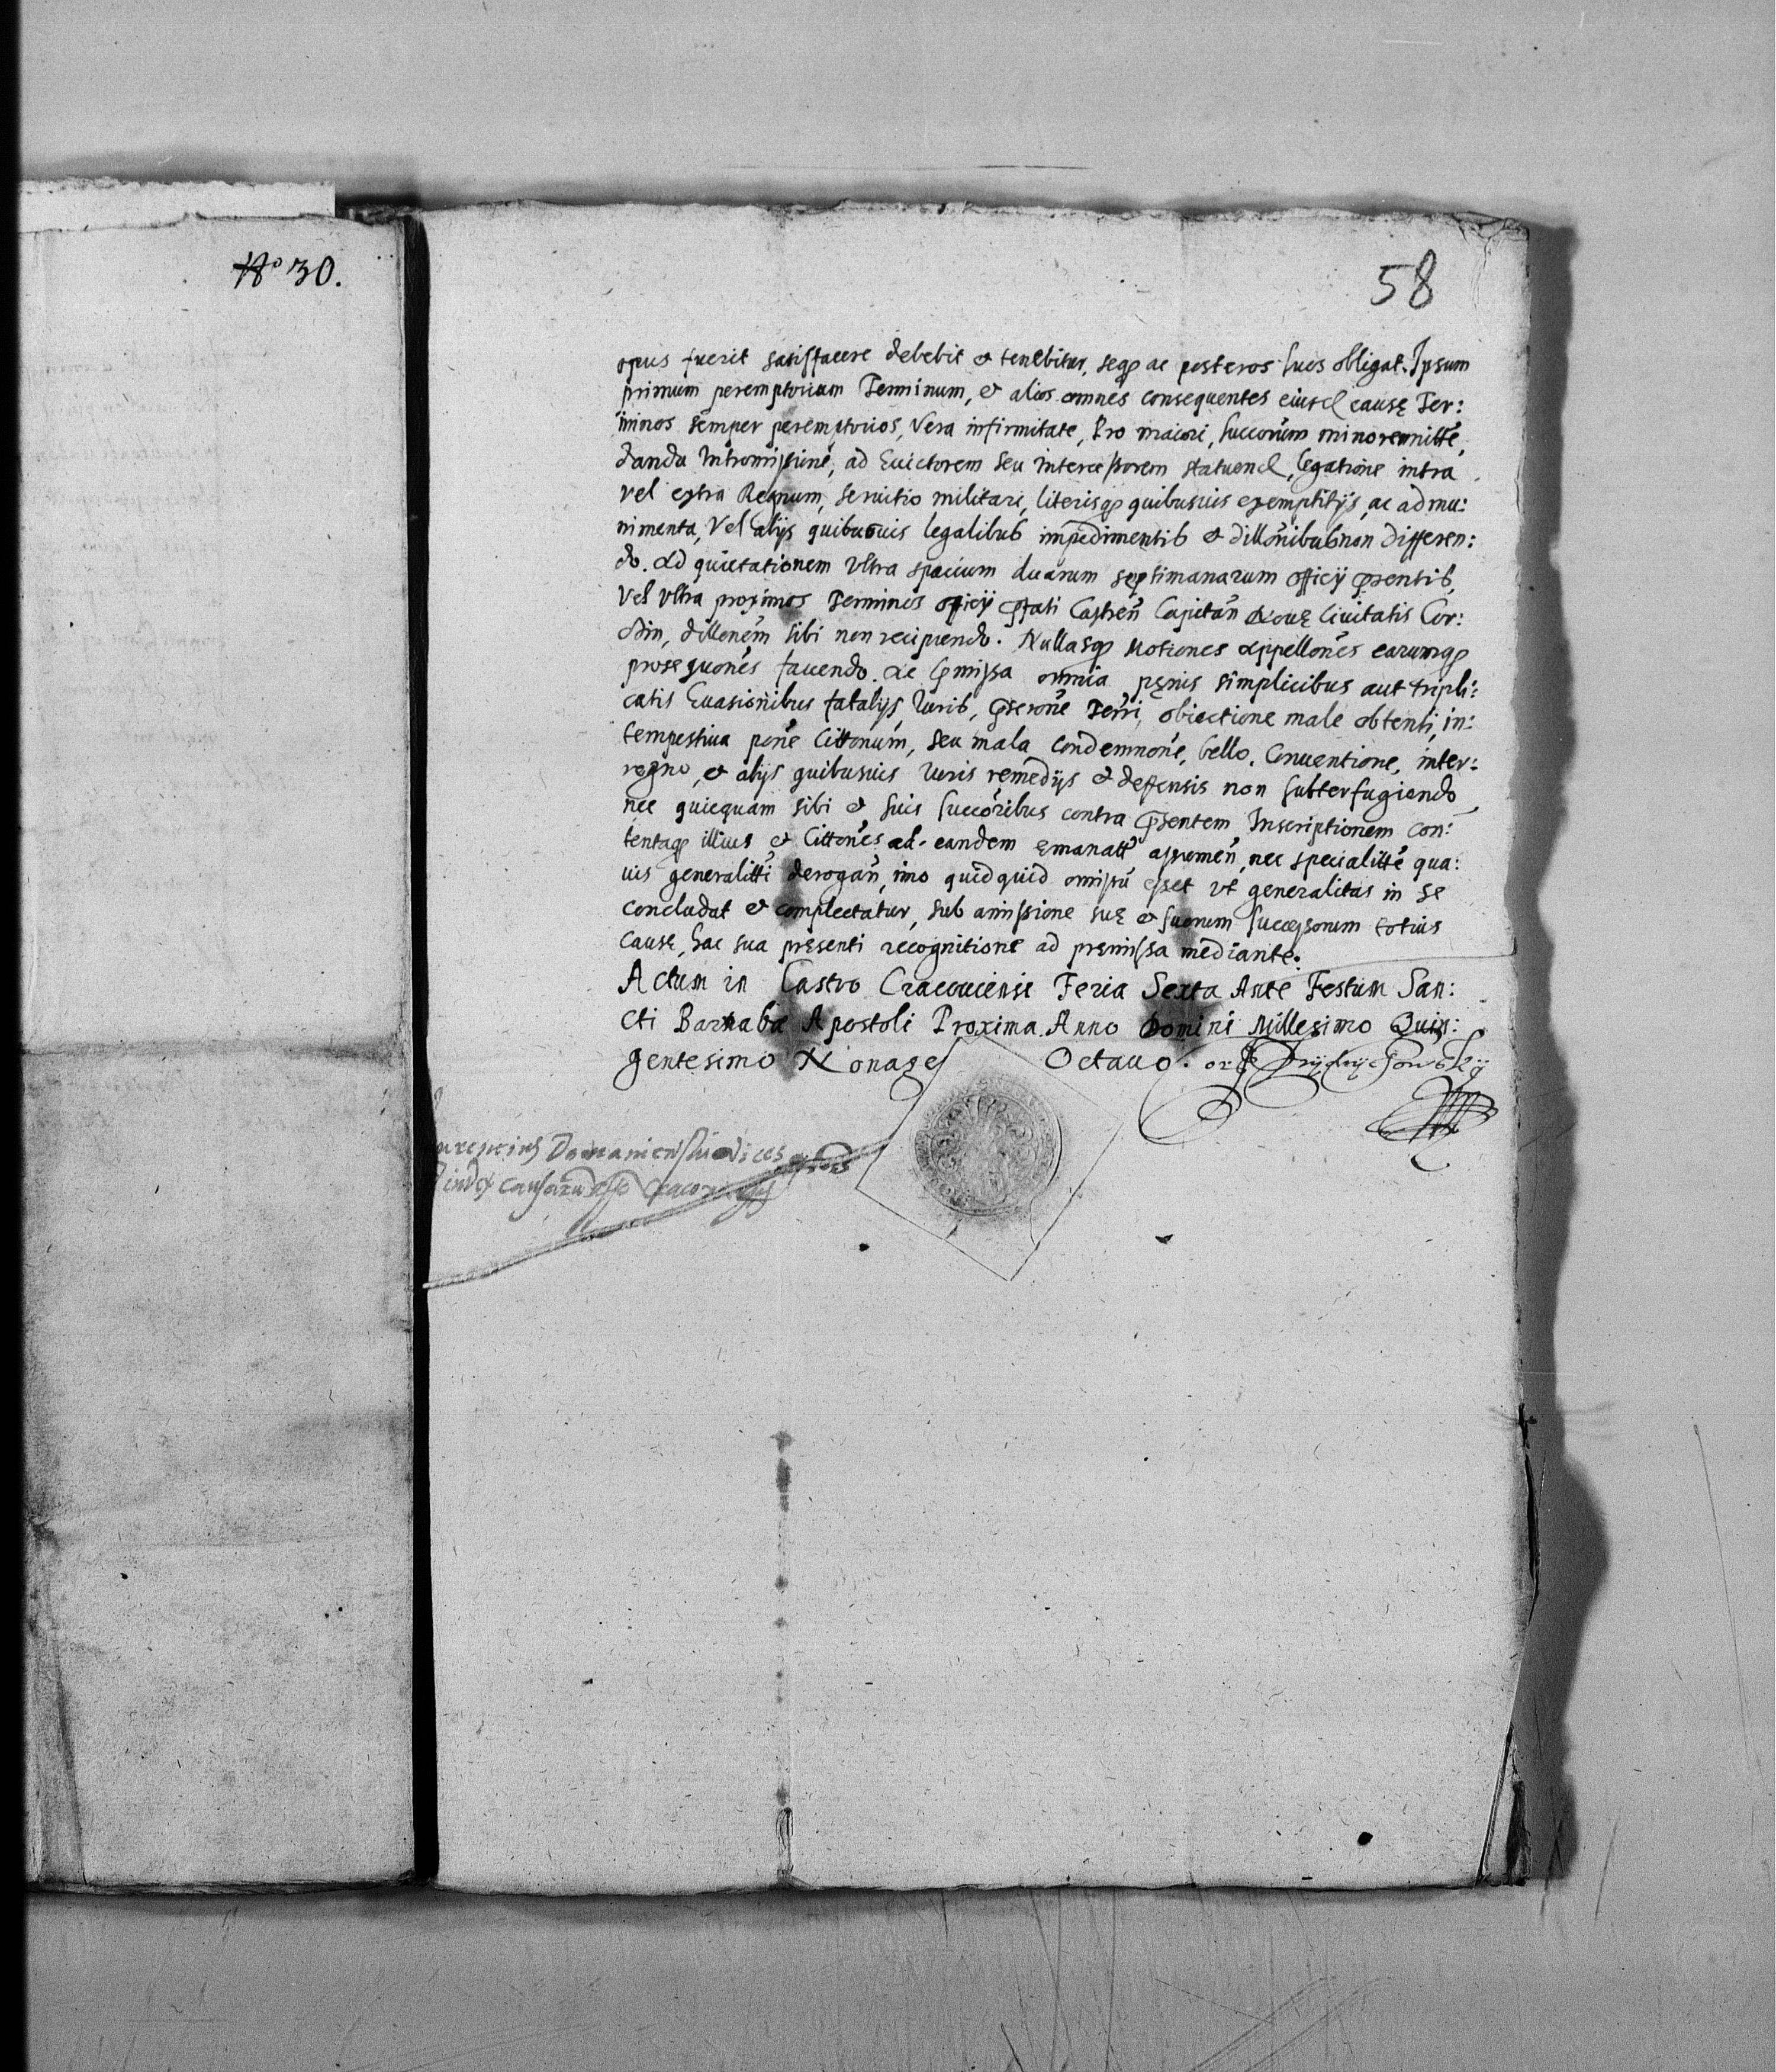 No 30.
58
opus fuerit satisfacere debebit et tenebitur, seqȝ ac posteros suos obligat. Ipsum
primum peremptorium Terminum, et alios omnes consequentes eiusd cause Ter:
minos semper peremptorios, Vera infirmitate, Pro maiori, succorum minorennitte,
danda Intromissione, ad Euictorem seu intercessorem statuend, legatione intra
vel extra Regnum, seruitio militari, literisqȝ quibusuis exemptitijs, ac ad mu:
nimenta, Vel alijs quibusuis legalibus impedimentis et dillonibus non differen:
do. Ad quietationem Vltra spacium duarum septimanarum officij psentis,
Vel Vltra proximos Terminos officij pfati Castren Capitan Nouę Ciuitatis Cor:
din, dillonem sibi non recipiendo. Nullasqȝ Motiones Appellones earumqȝ
prosequones faciendo. Ac pmissa omnia pęnis simplicibus aut tripli:
catis Euasionibus fatalijs Iuris, pserone Terri, obiectione male obtenti, in:
tempestiua pone Cittonum, seu mala condemnone, bello, Conuentione, inter:
regno, et alijs quibusuis Iuris remedijs et deffensis non subterfugiendo
nec quicquam sibi et suis succoribus contra psentem Inscriptionem con:
tentaqȝ illius et Cittones ad eandem emanatt assumen, nec specialitte qua:
uis generalitti derogan, imo quidquid omissu esset vt generalitas in se
concludat et complectatur, sub amissione suę et suorum successorum totius
cause, hac sua pręsenti recognitione ad pręmissa mediante.
Actum in Castro Cracouiensi Feria Sexta Ante Festum San:
cti Barnabę Apostoli Proxima. Anno Domini Millesimo Quin:
gentesimo Nonages Octauo.